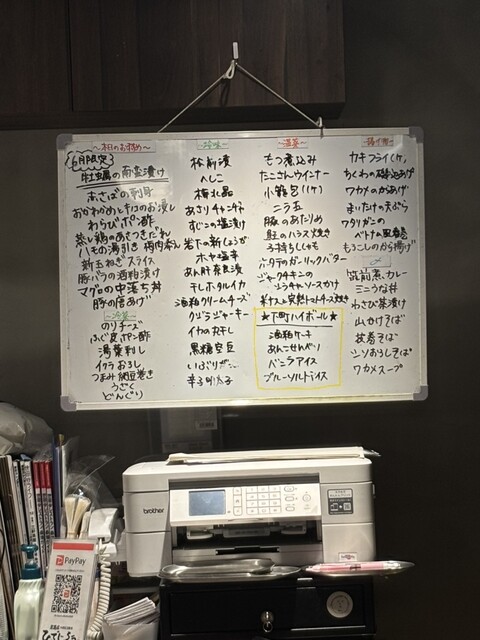 〜本日のおすすめ〜
6月限定
牡蠣の南蛮漬け
あさばの刺身
おかわかめときのこのお浸し
わらびポン酢
蒸し鶏のあさつきだれ
ハモの湯引き 梅肉添え
新玉ねぎスライス
豚バラの酒粕漬け
マグロの中落ち丼
豚の唐あげ
〜冷菜〜
のりチーズ
ふぐ皮ポン酢
湯葉刺し
イクラおろし
つまみ納豆巻き
うざく
どんぐり
〜珍味〜
松前漬
へしこ
梅水晶
あさりチャンヂャ
すじこの塩漬け
岩下の新しょうが
ホヤ塩辛
あん肝奈良漬
干しホタルイカ
酒粕クリームチーズ
クジラジャーキー
イカの丸干し
黒糖空豆
いぶりガッコ
辛子明太子
〜温菜〜
もつ煮込み
たこさんウインナー
小籠包(1ヶ)
ニラ玉
豚のあたりめ
鮭のハラス焼き
子持ちししゃも
ホタテのガーリックバター
ジャコチキンの
チャンソースかけ
米ナスと完熟トマトのチーズ焼き
★下町ハイボール★
酒粕ケーキ
あんこせんべい
バニラアイス
ブルーソルトアイス
〜揚げ物〜
カキフライ(1ヶ)
ちくわの磯辺あげ
ワカメのかきあげ
まいたけの天ぷら
ワタリガニの
ベトナム風春巻
もろこしのから揚げ
〜〆〜
筑前煮カレー
ミニうな丼
わさび茶漬け
山かけそば
梅香そば
シソおろしそば
ワカメスープ
brother
PayPay